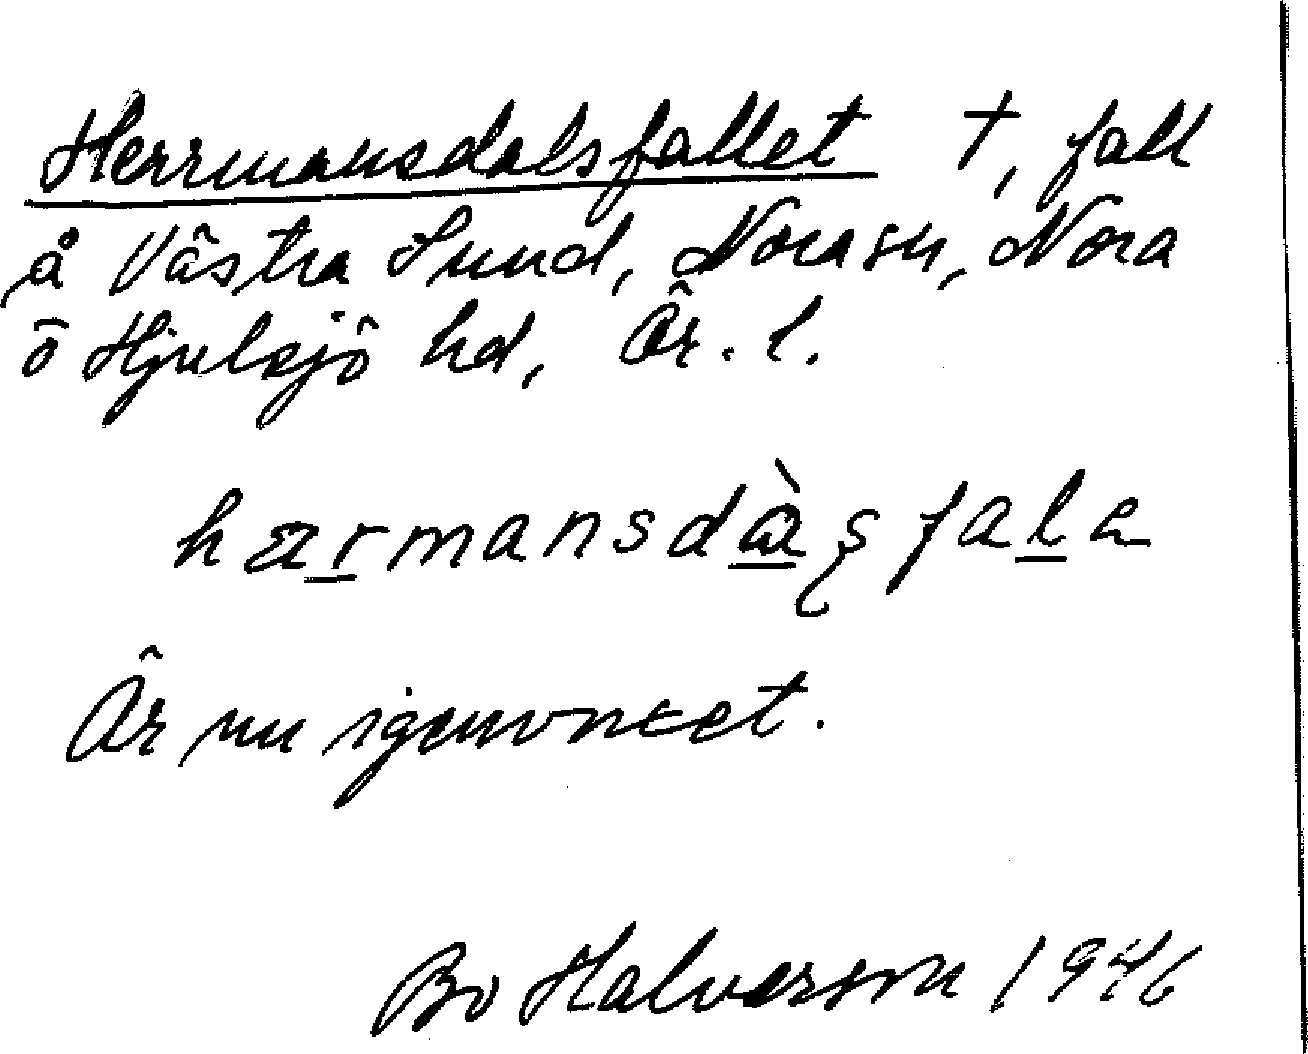 Herrmansdalsfallet †, fall
å Västra Sund, Nora sn, Nora
o Hjulsjö hd, Ör. l.
härmansdàsfala
Är nu igenvuxet.
Bo Halverson 1946